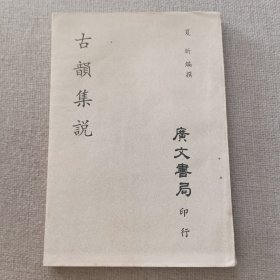 夏炘編撰
古韻集說
廣文書局
印行